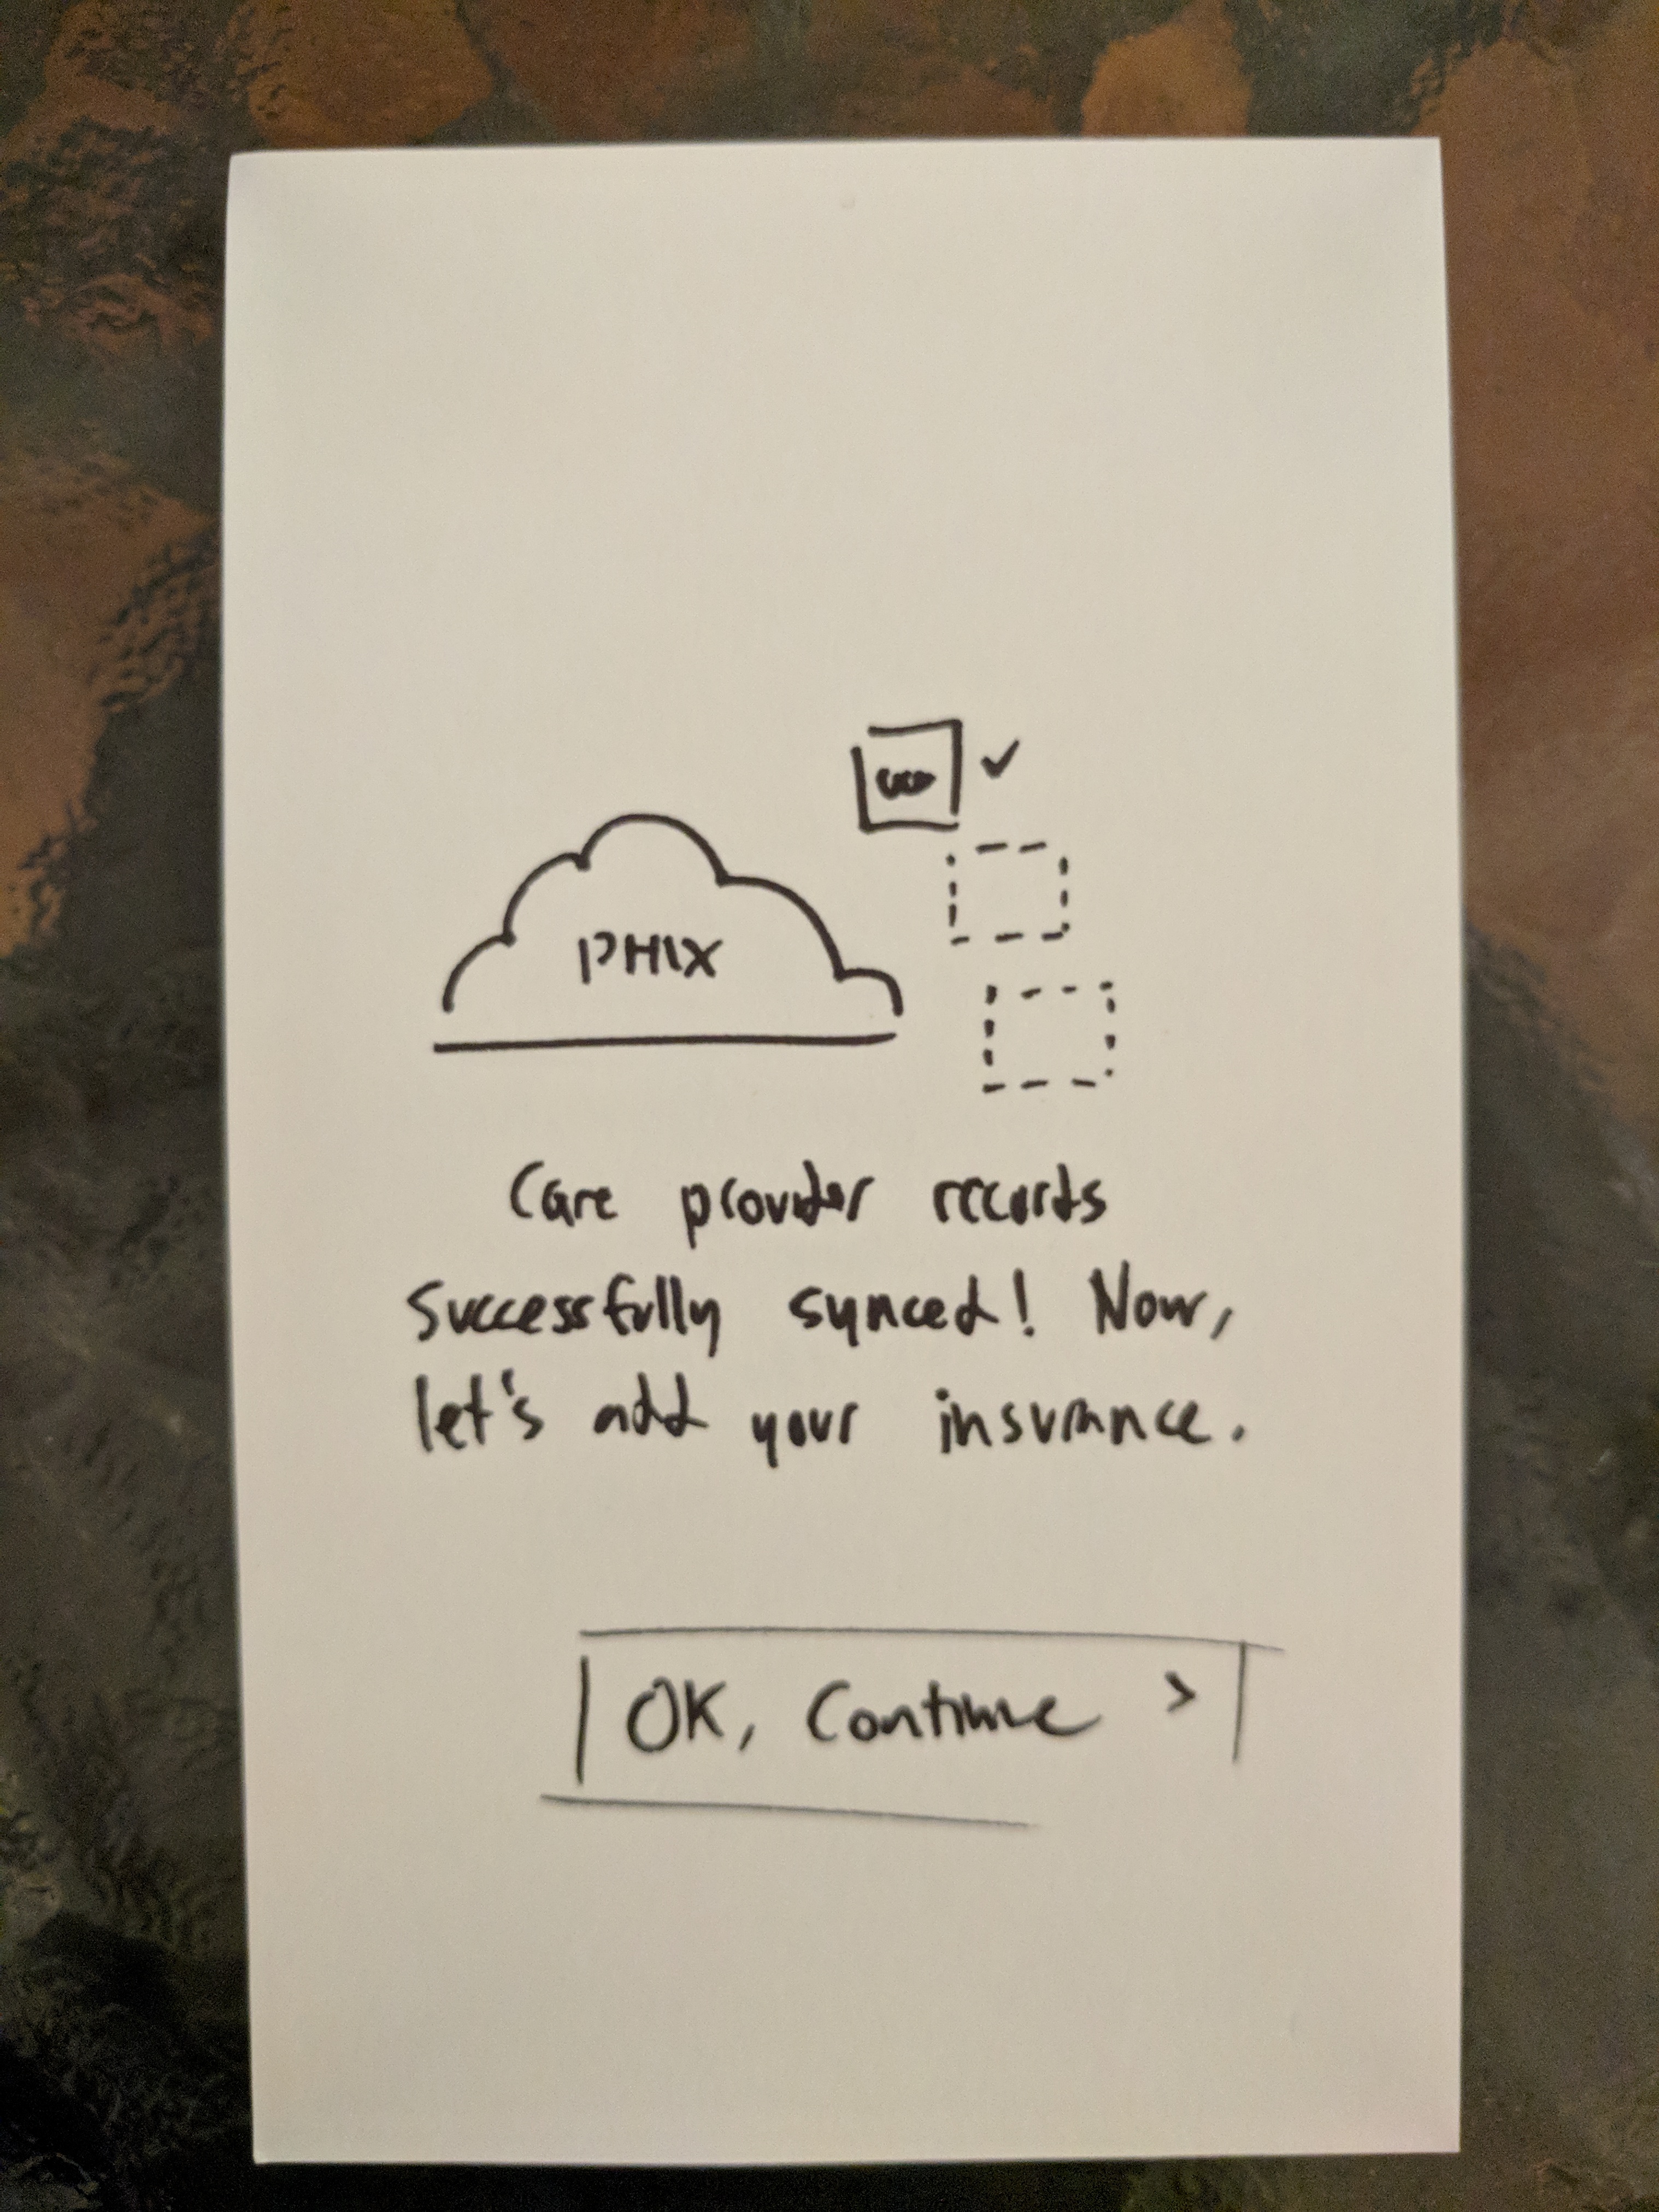 PHIX
Care provider records
successfully synced! Now,
let's add your insurance.
OK, Continue >